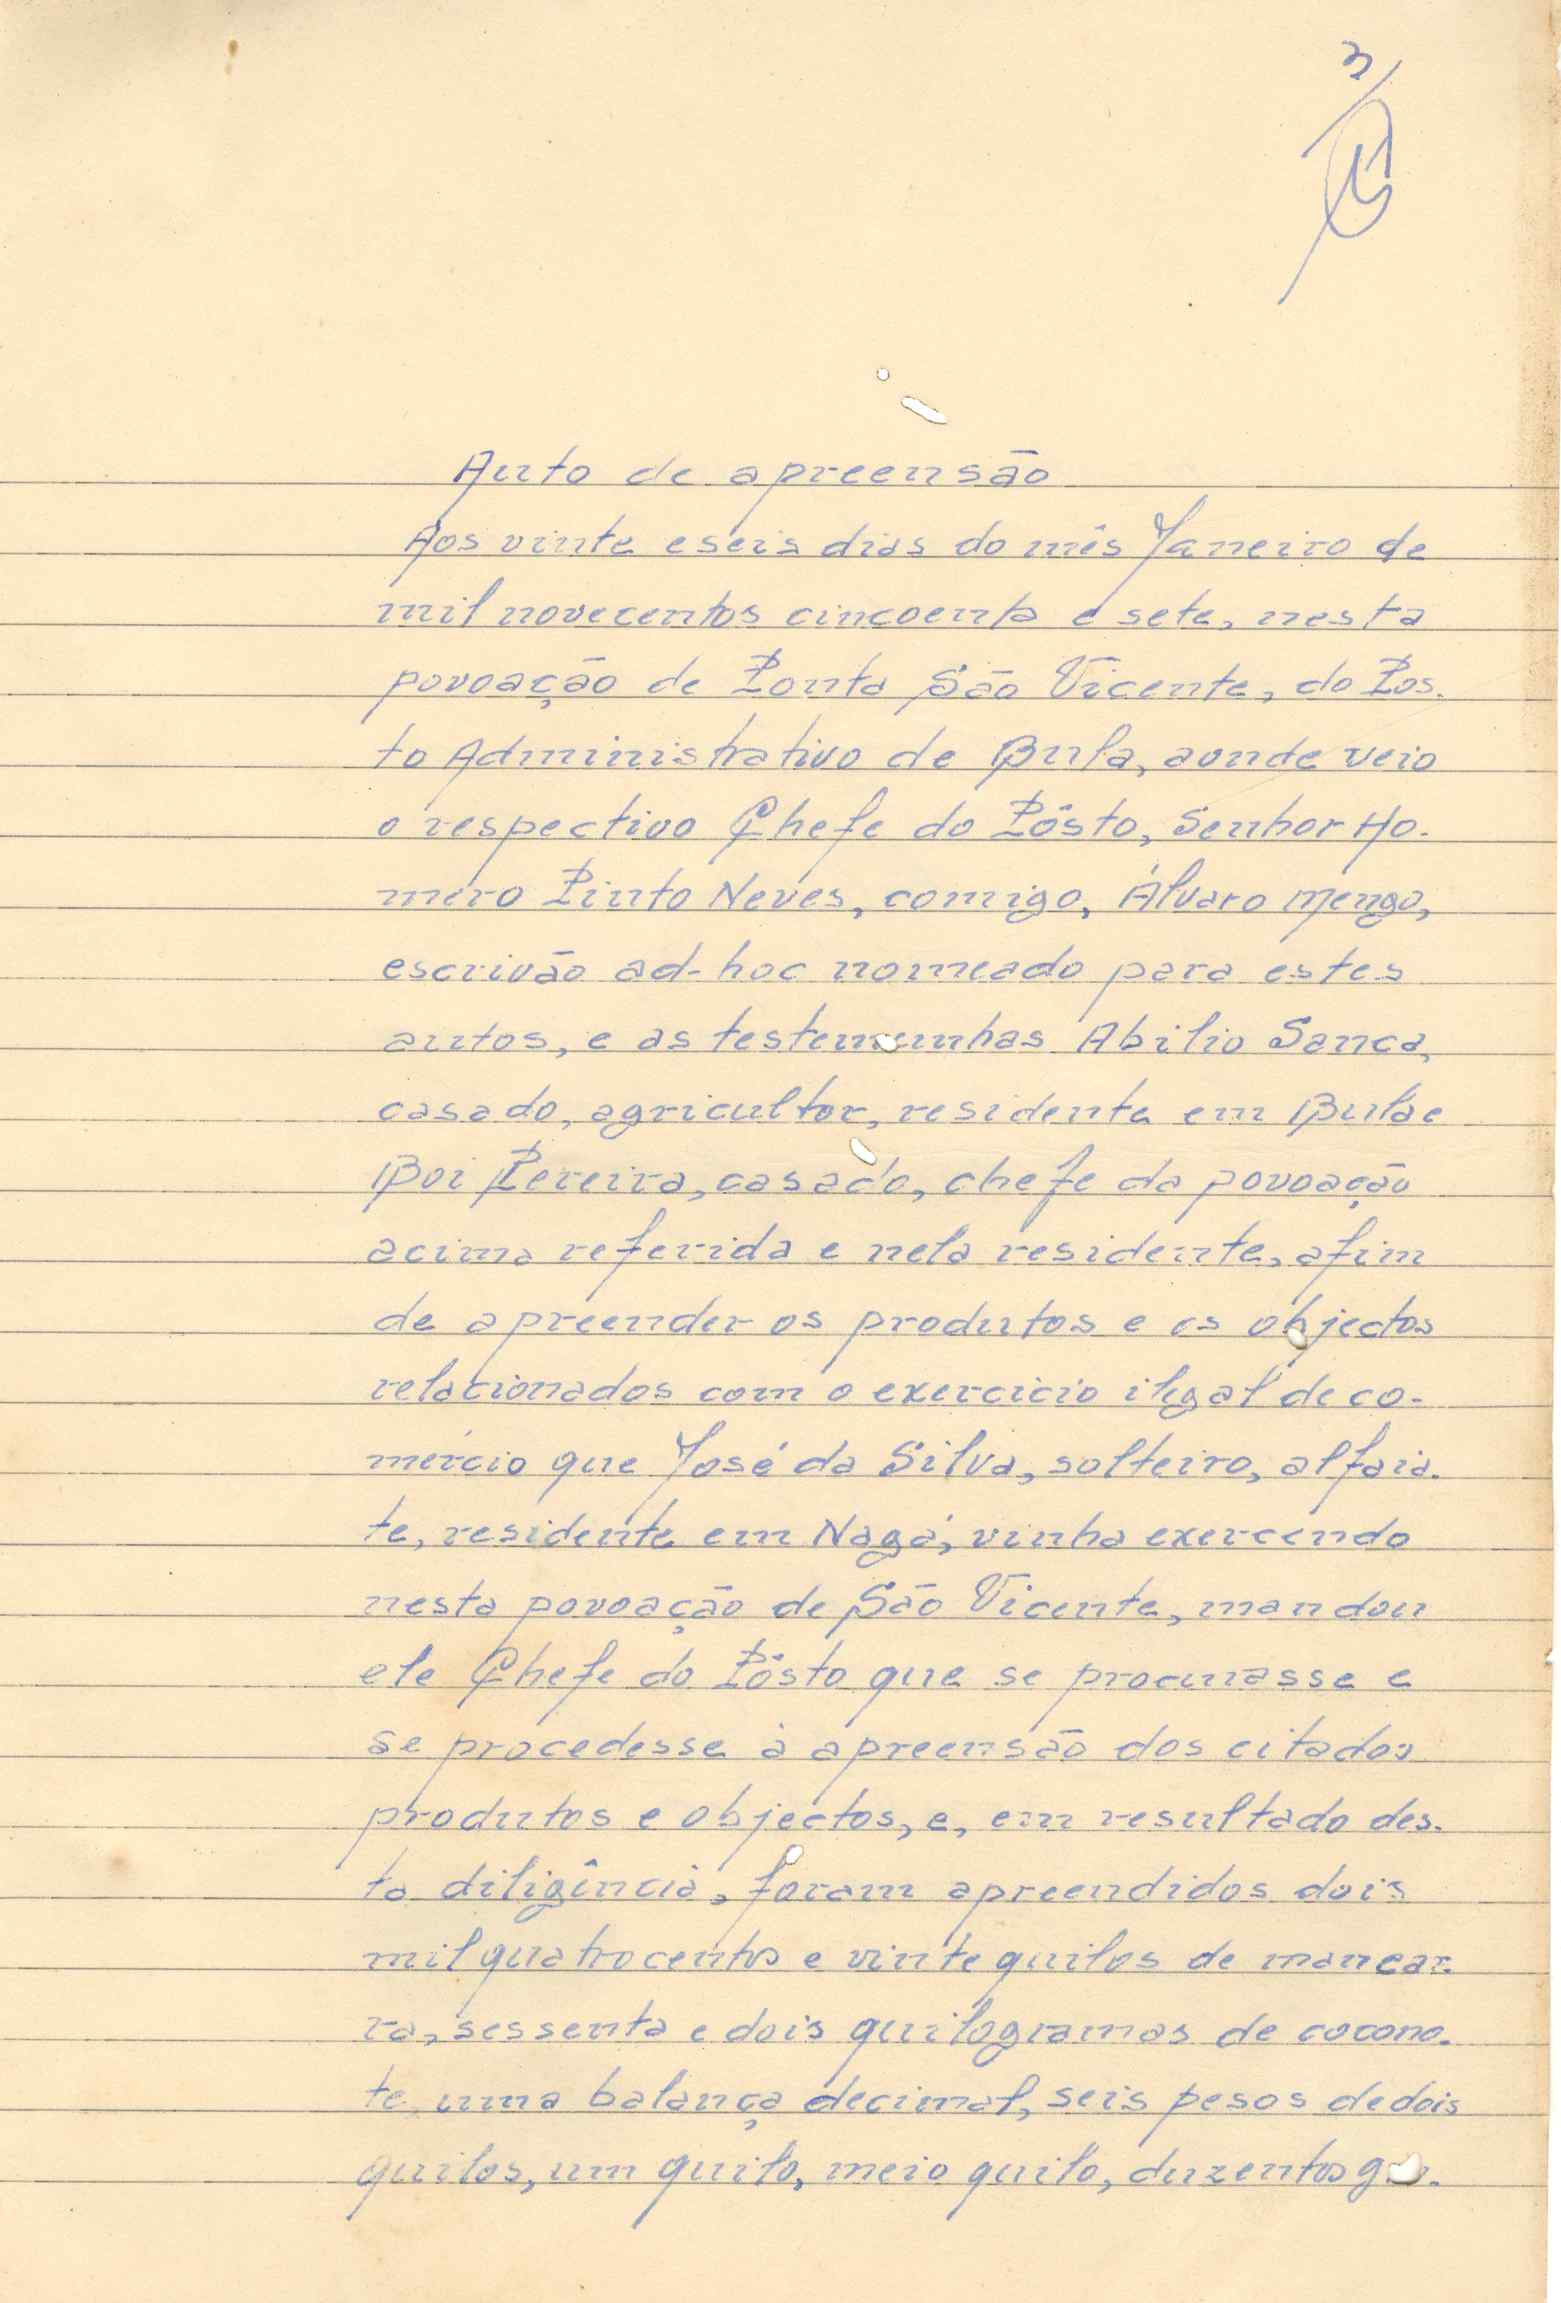 3
Auto de apreensão
Aos vinte e seis dias do mês Janeiro de
mil novecentos cincoenta e sete, nesta
povoação de Ponta São Vicente, do Pos-
to Administrativo de Bula, aonde veio
o respectivo Chefe do Pôsto, Senhor Ho-
mero Pinto Neves, comigo, Álvaro Mengo,
escrivão ad-hoc nomeado para estes
autos, e as testemunhas Abilio Sanca,
casado, agricultor, residente em Bula e
Boi Pereira, casado, chefe da povoação
acima referida e nela residente, afim
de apreender os produtos e os objectos
relacionados com o exercicio ilegal de co-
mércio que José da Silva, solteiro, alfaia-
te, residente em Nagá, vinha exercendo
nesta povoação de São Vicente, mandou
ele Chefe do Pôsto que se procurasse e
se procedesse à apreensão dos citados
produtos e objectos, e, em resultado des-
ta diligência, foram apreendidos dois
mil quatrocentos e vinte quilos de mancar-
ra, sessenta e dois quilogramas de cocono-
te, uma balança decimal, seis pesos de dois
quilos, um quilo, meio quilo, duzentos